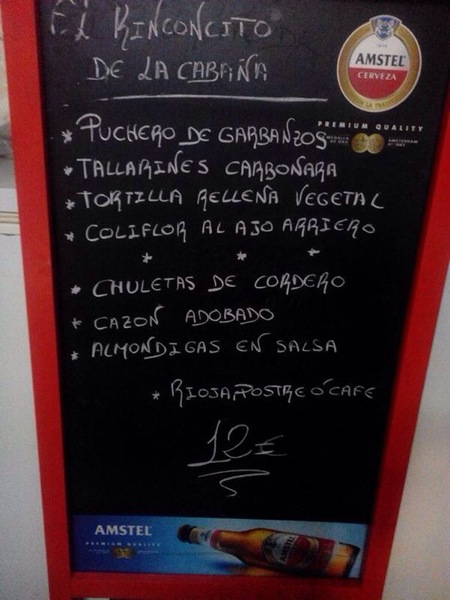 EL RINCONCITO
DE LA CABAÑA
AMSTEL
CERVEZA
PREMIUM QUALITY
* PUCHERO DE GARBANZOS
* TALLARINES CARBONARA
* TORTILLA RELLENA VEGETAL
* COLIFLOR AL AJO ARRIERO
* * *
* CHULETAS DE CORDERO
* CAZON ADOBADO
* ALMONDIGAS EN SALSA
* RIOJA, POSTRE Ó CAFE
12€
AMSTEL
PREMIUM QUALITY
AMSTEL